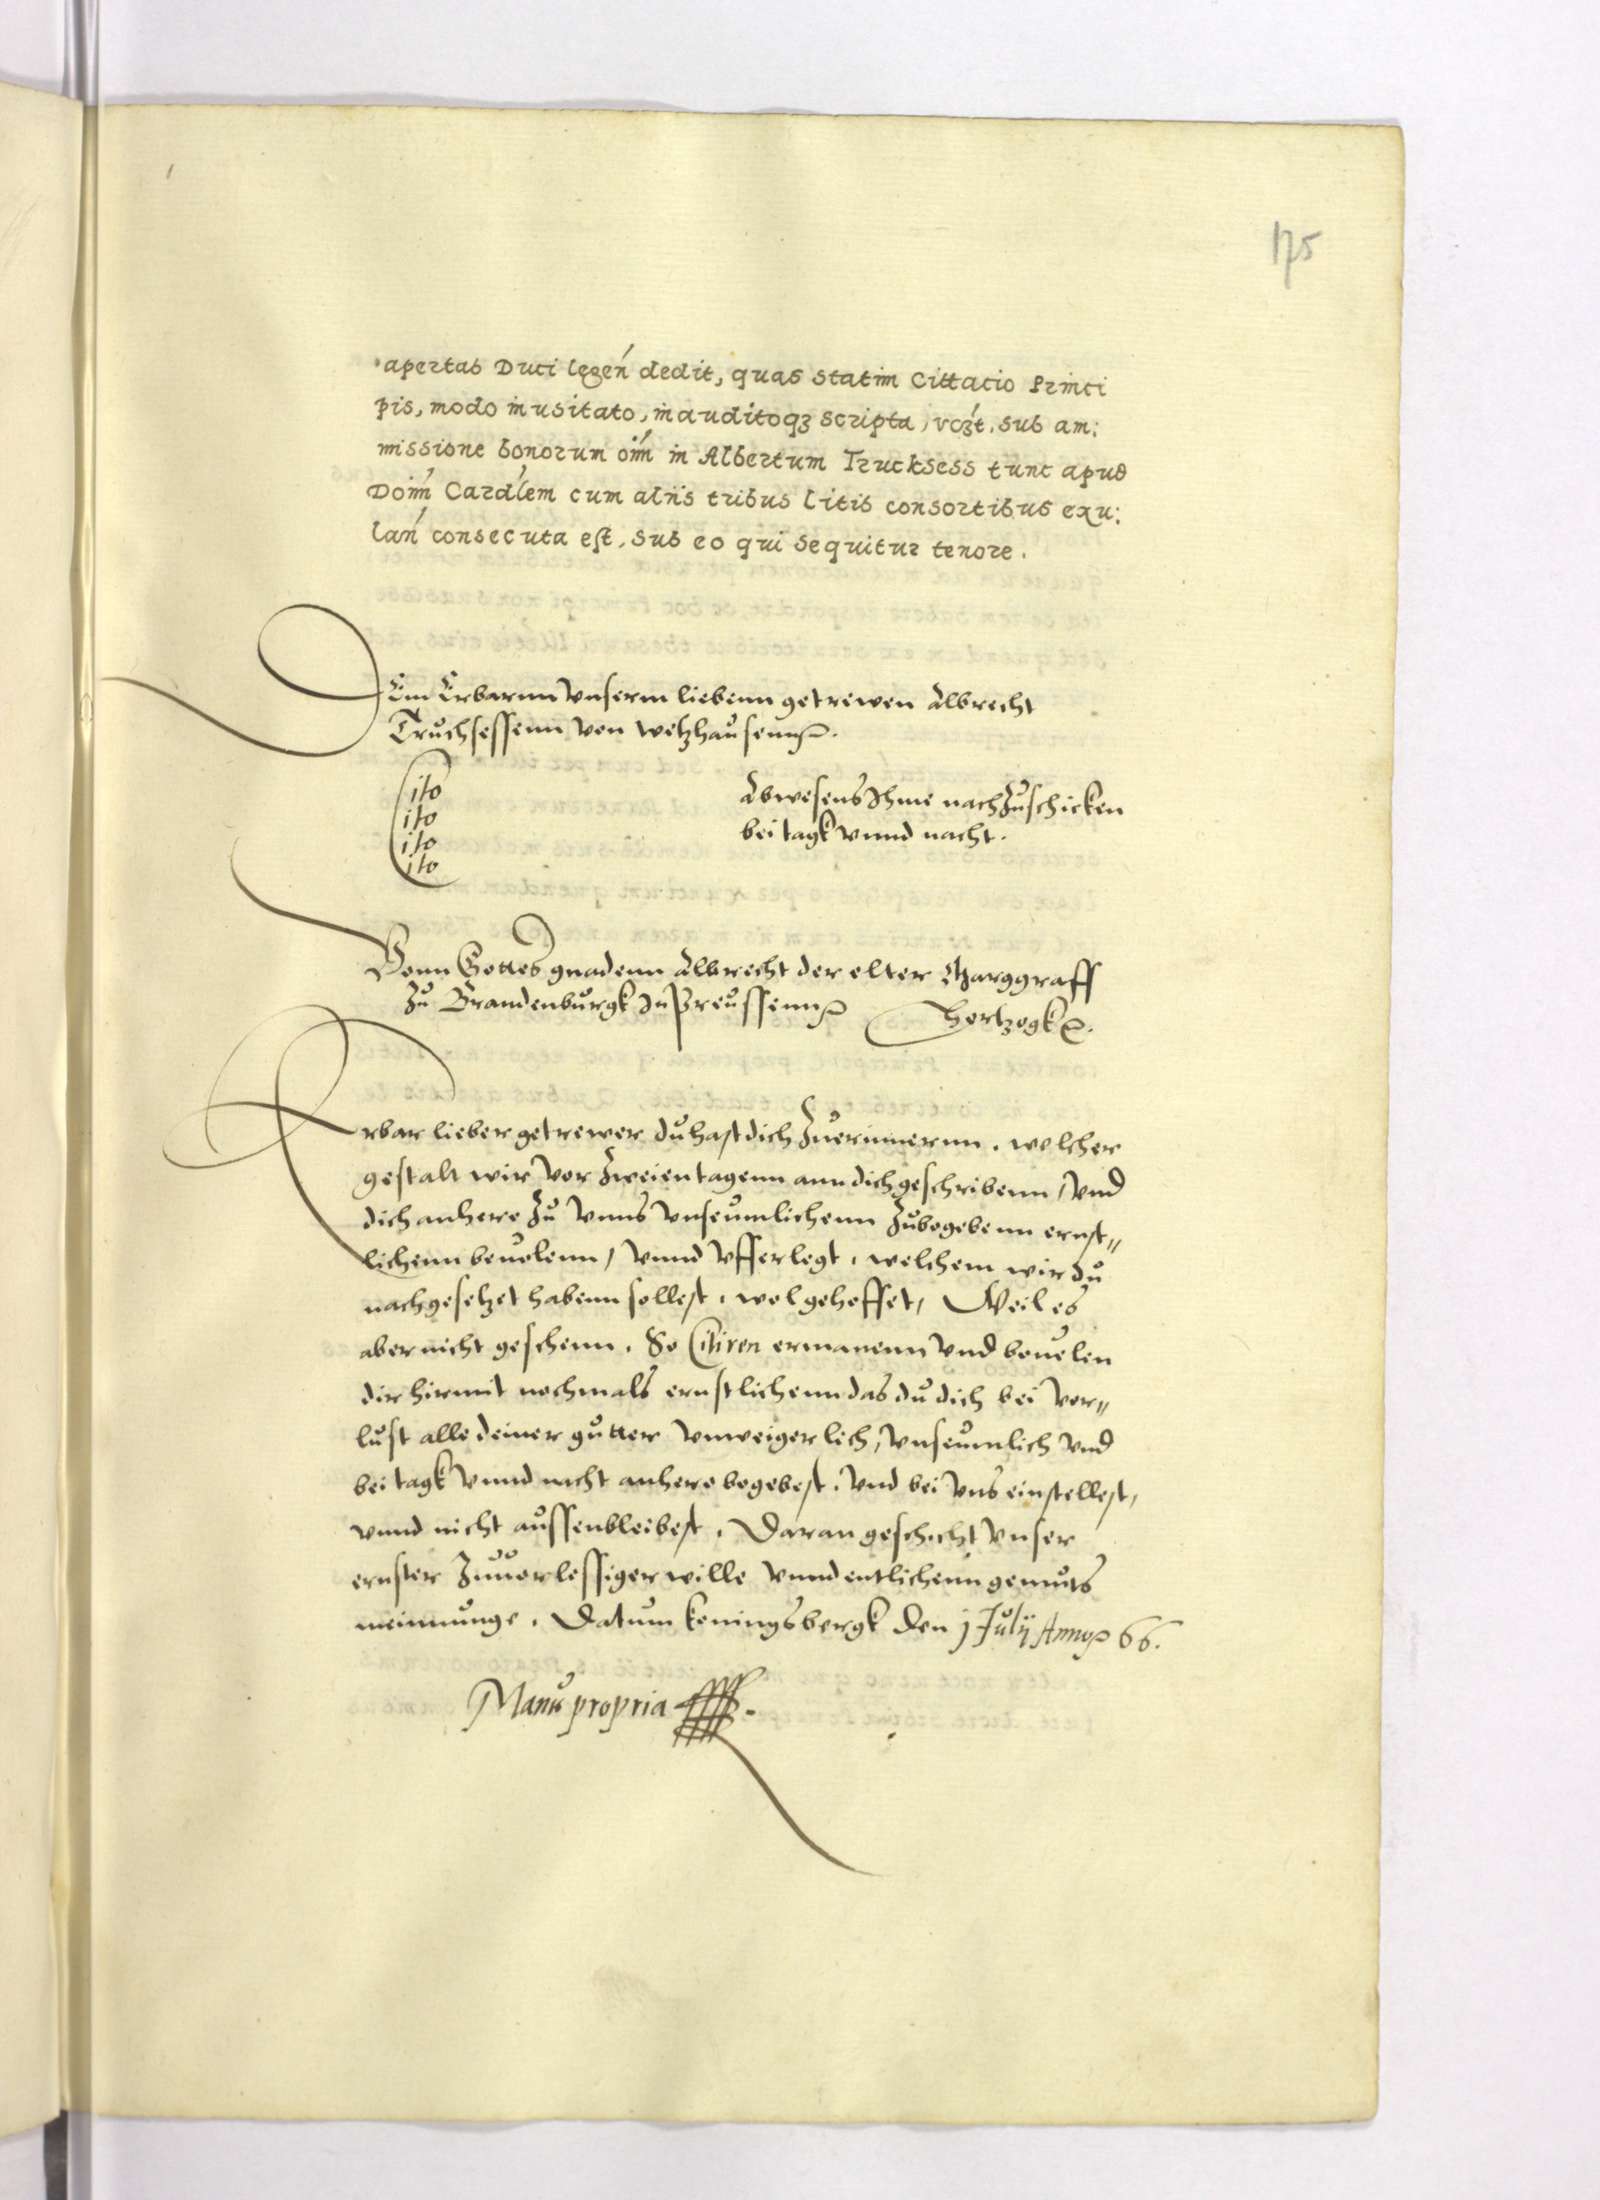 175
apertas Duci legen̄ dedit, quas statim Cittatio Princi
pis, modo inusitato, inauditoqꝫ scripta, vcꝫt. sub am:
missione bonorum om̄ in Albertum Trucksess tunc apud
Dom̄ Cardlem cum alijs tribus litis consortibus exu:
lan̄ consecuta est, sub eo qui sequitur tenore.
Dem Erbarnn vnserm liebenn getrewen Albrecht
Truchsessenn von Wetzhausenn
Cito
Cito
Cito
Cito
Abwesens Ihme nachzuschicken
bei tagk vnnd nacht.
Vonn Gottes gnadenn Albrecht der elter Marggraff
zu Brandenburgk In Preussenn
Hertzogk
Erbar lieber getrewer du hast dich zuerinnernn, welcher
gestalt wir vor zweien tagenn ann dich geschribenn, vnd
dich anhero zu vnns vnseumlichenn zubegebenn ernst„
lichenn beuolenn, vnnd vfferlegt, welchem wir du
nachgesetzet habenn sollest, wol gehoffet, Weil es
aber nicht geschenn, So Citiren ermanenn vnd beuelen
dir hirmit nochmals ernstlichenn das du dich bei vor„
lust alle deiner gutter vnweigerlich, vnseumlich vnd
bei tagk vnnd nacht anhero begebest, vnd bei vns einstellest,
vnnd nicht aussenbleibest, Daran geschicht vnser
ernster zuuorlessiger wille vnnd entlichenn gemuts
meinnunge, Datum Koningsbergk den j Julij Anno 66.
Manus propria